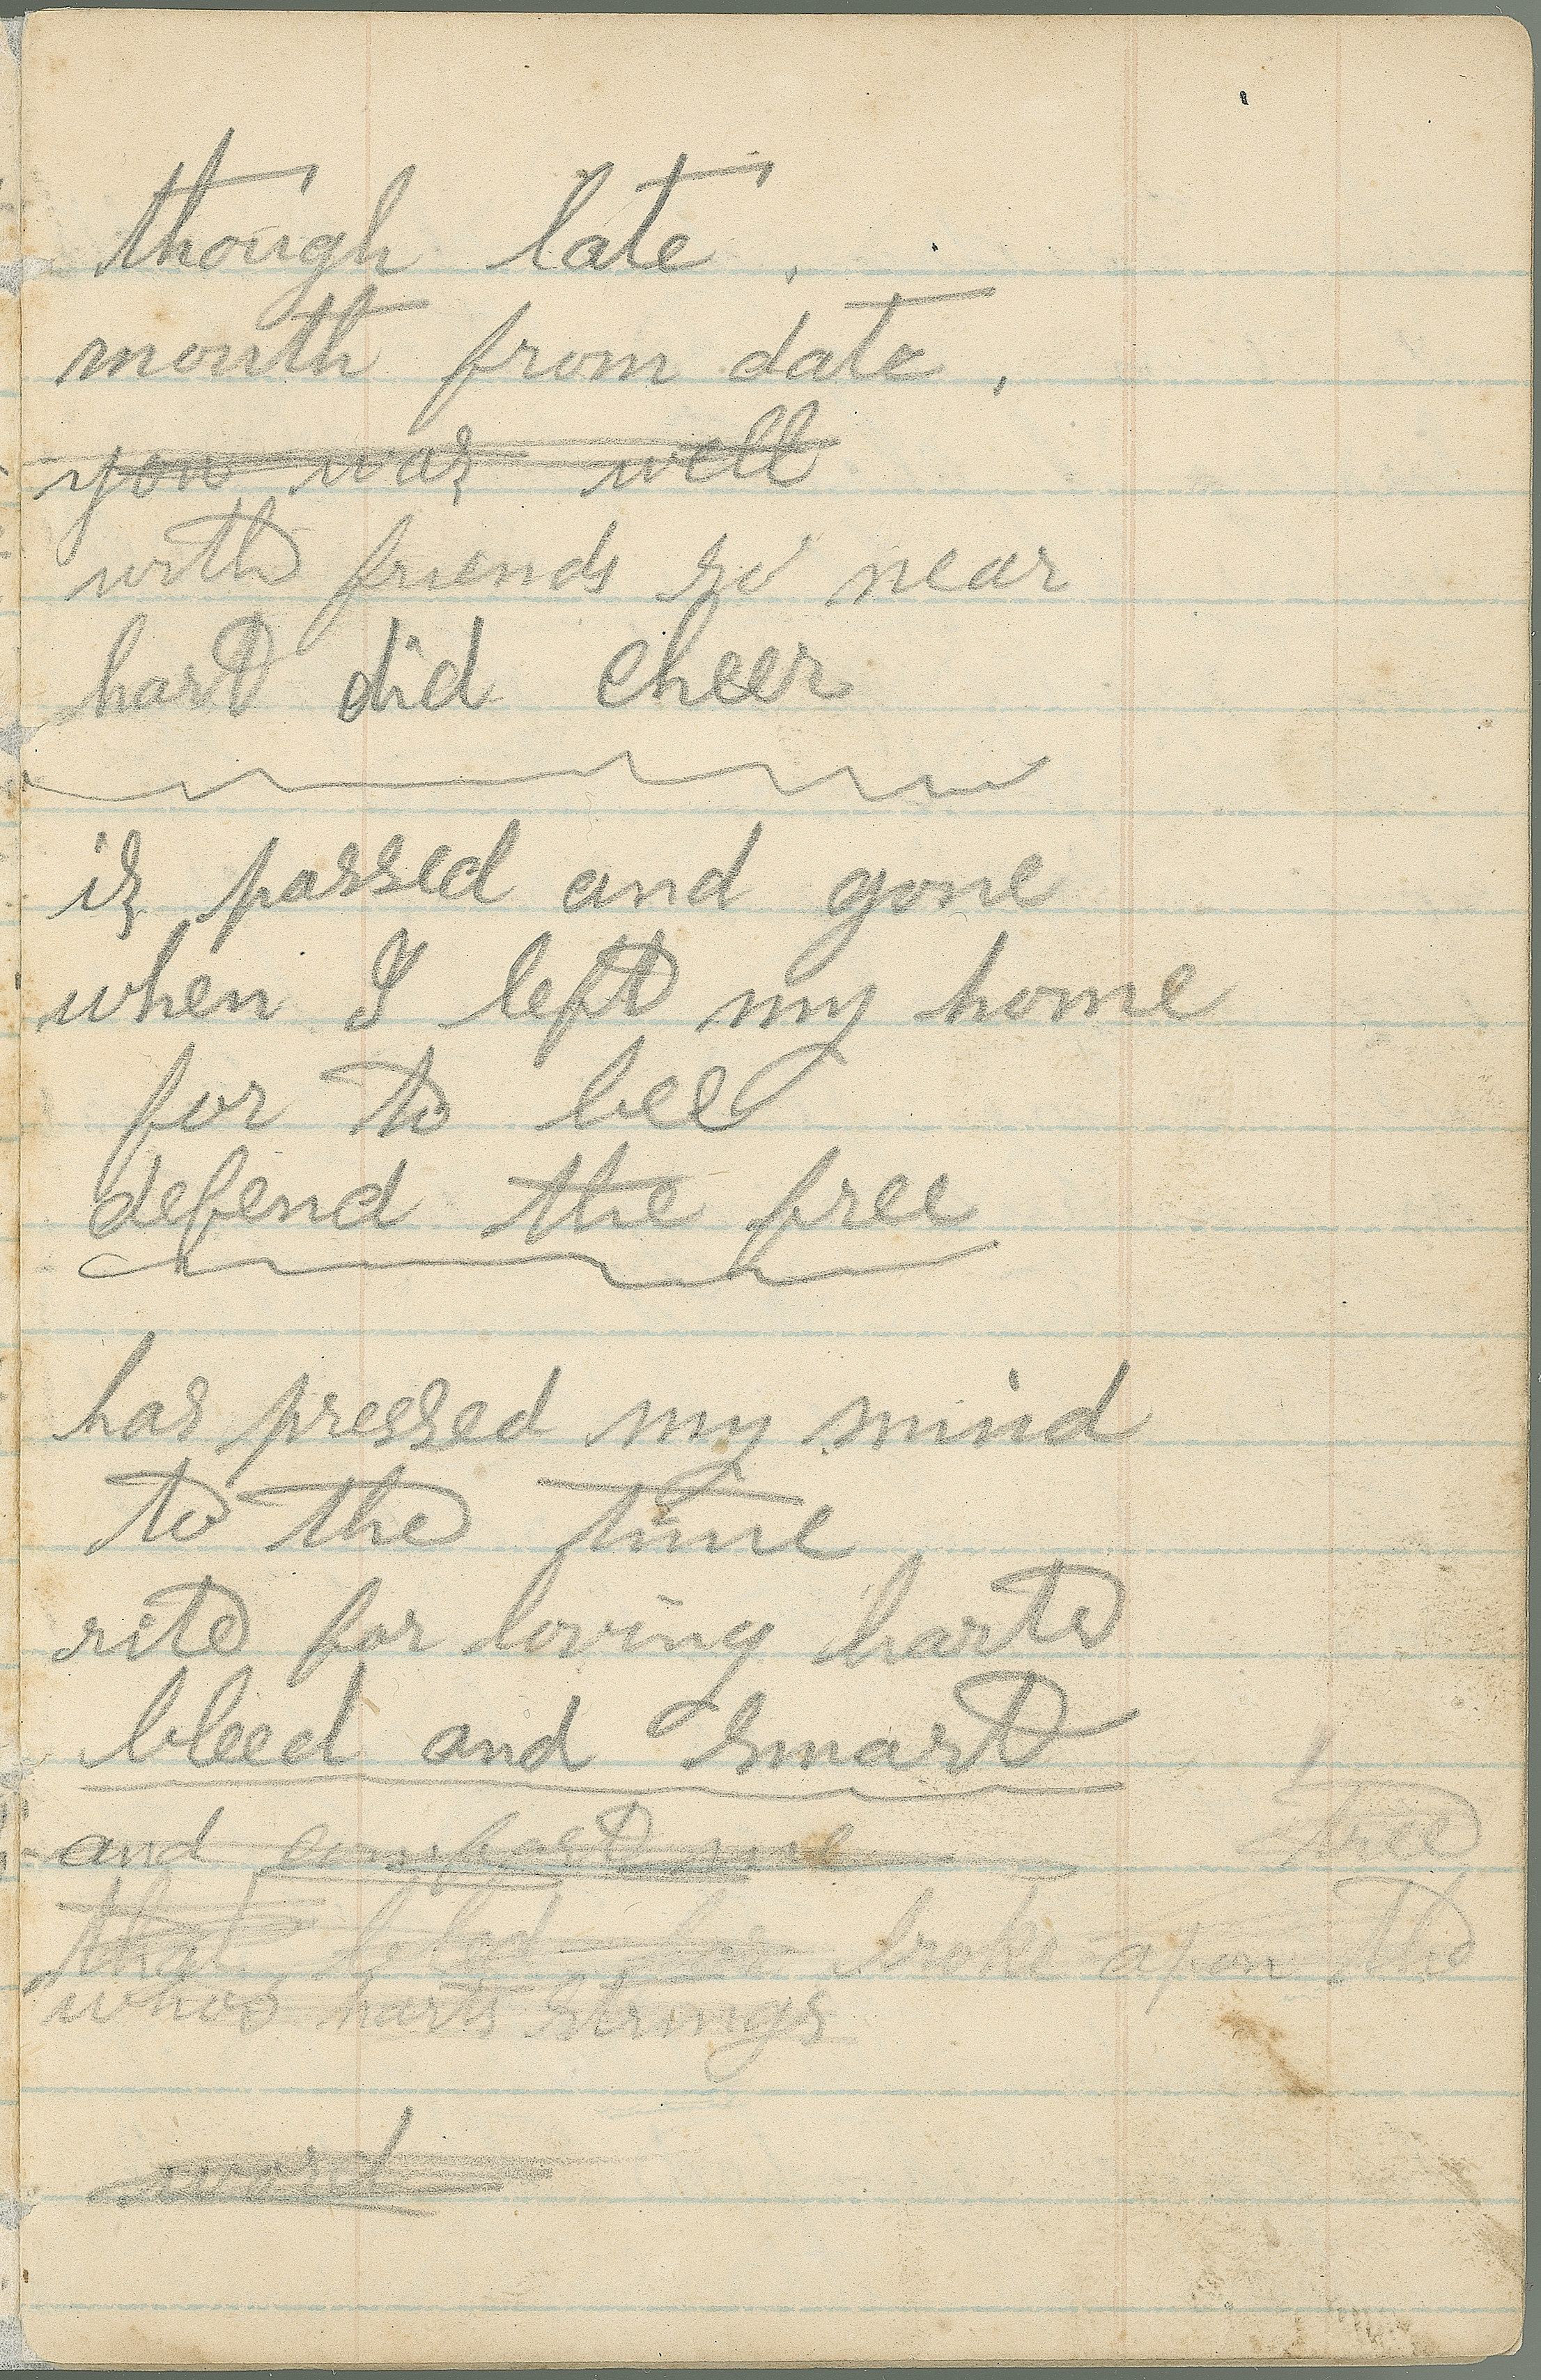 though late,
month from date,
you was well
with friends so near
hart did cheer
is passed and gone
when I left my home
for to bee
defend the free
has pressed my mind
to the time
rite for loving harts
bleed and smart
and comfort me
tree
that bled for broke apon the
whos harts strings
word